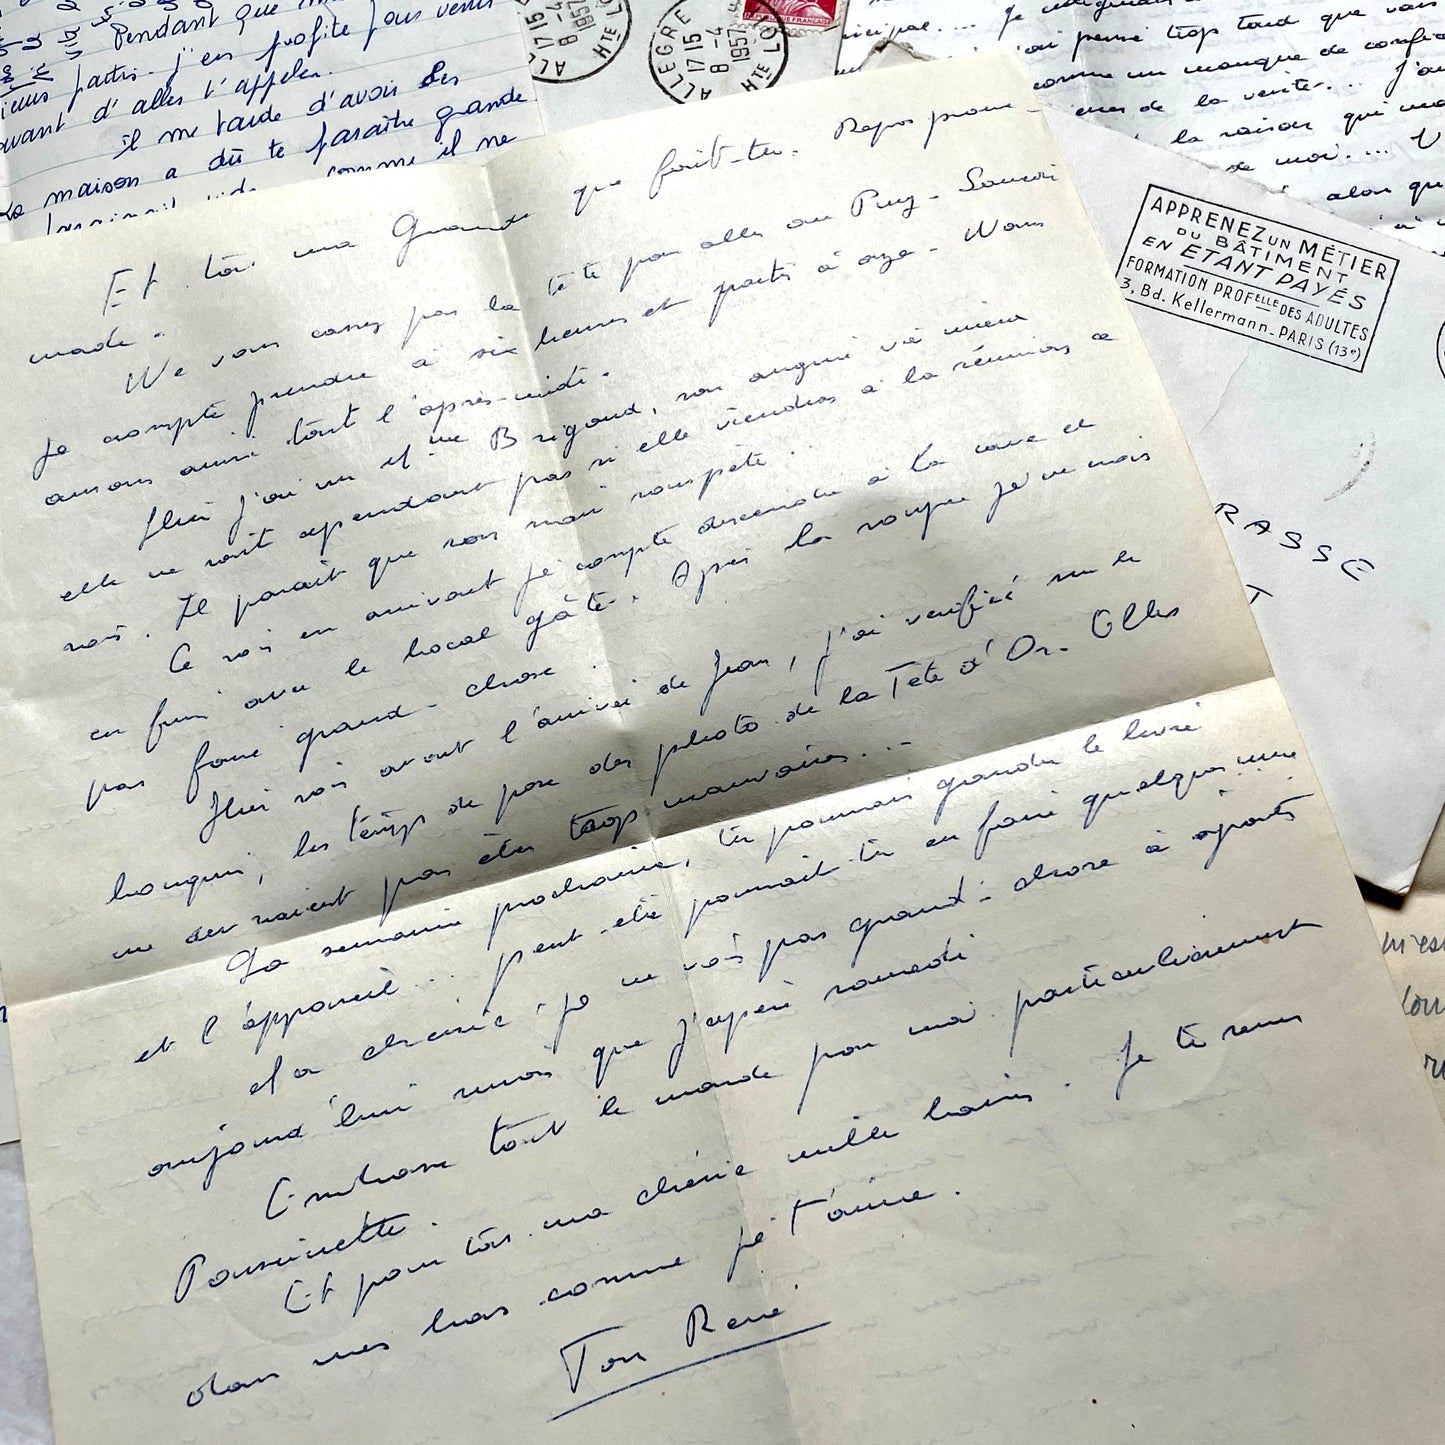 Pendant que
j'en profite pour venir
avant d'aller t'appeler.
il me tarde d'avoir des
La maison a dû te paraître grande
comme il ne
ALLEGRE
17 15
8 - 4
1957
Hte LO
ALLEGRE
17 15
8 - 4
1957
Hte LO
REPUBLIQUE FRANCAISE
trop tard que vous
comme un manque de confia
de la verité... J'ai
la raison qui m'a
de moi....
alors que
APPRENEZ UN MÉTIER
DU BÂTIMENT
EN ETANT PAYÉS
FORMATION PROFELLE DES ADULTES
3, Bd. Kellermann - PARIS (13e)
RASSE
T
Et toi ma Grande que fait-tu. Repos prome-
nade.
Ne vous cassez pas la tête pour aller au Puy - Samedi
Je compte prendre à six heures et partir à onze - Nous
aurons ainsi tout l'après-midi.
Hier j'ai vu Mme Brigaud, son angine va mieux
elle ne sait cependant pas si elle viendra à la réunion ce
soir. Il parait que son mari rouspète.
Ce soir en arrivant je compte descendre à la cave et
en finir avec le local gâté. Après la soupe je ne vais
pas faire grand-chose.
Hier soir avant l'arrivée de Jean, j'ai verifié sur le
bouquin, les temps de pose des photo de la Tete d'Or. Elles
ne devraient pas être trop mauvaises...
La semaine prochaine, tu pourrais prendre le livre
et l'appareil... peut-etre pourrait-tu en faire quelques unes
Je ne vois pas grand-chose à ajouter
aujourd'hui sinon que j'espère samedi
Embrasse tout le monde pour moi particulièrement
Poussinette.
Et pour toi ma chérie mille baisers. Je te serre
dans mes bras comme je t'aime.
Ton René.